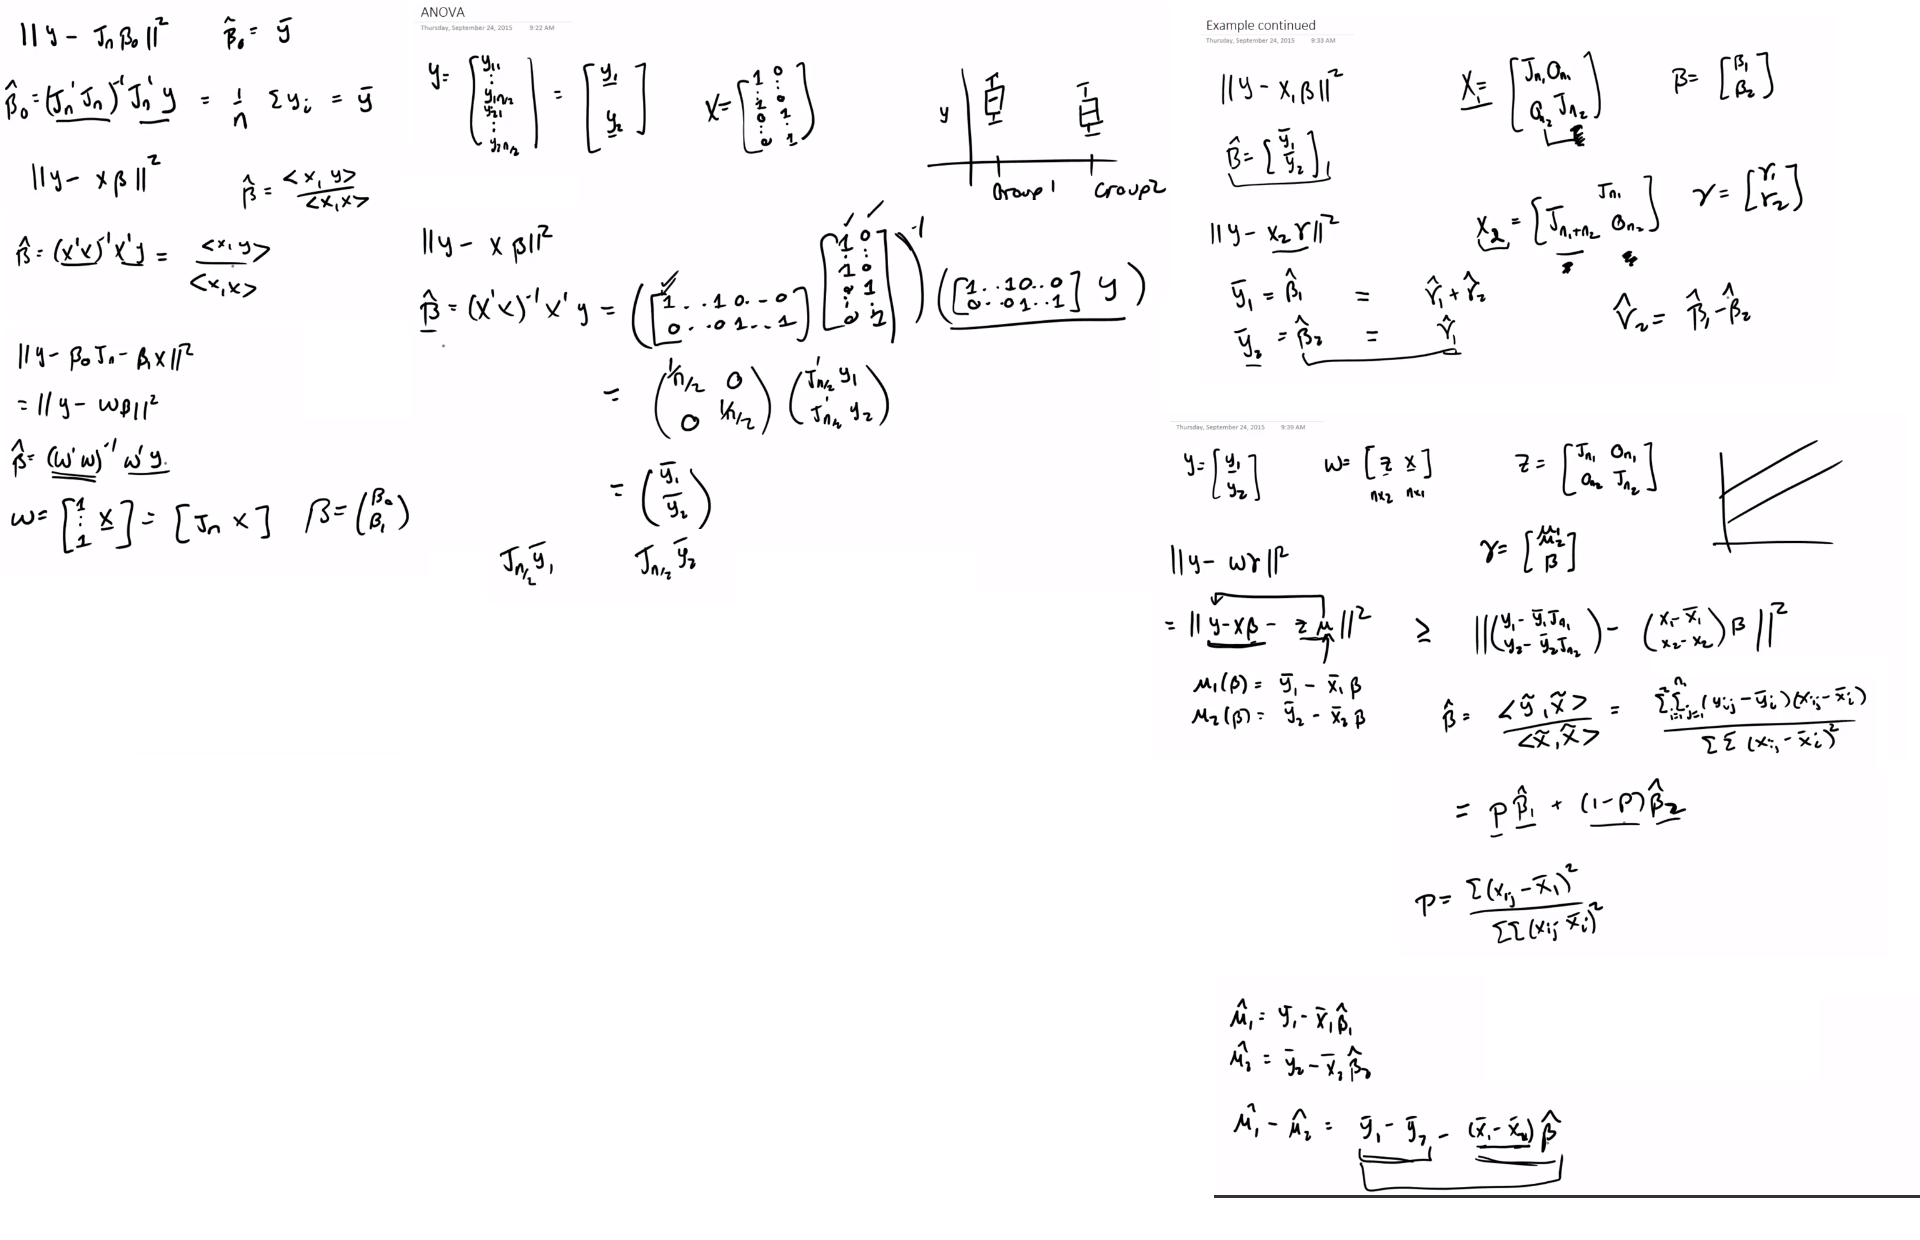 ||y - Jₙβ₀||² β̂₀ = ȳ
β̂₀ = (Jₙ'Jₙ)⁻¹Jₙ'y = 1/n Σyᵢ = ȳ
||y - xβ||² β̂ = <x, y> / <x, x>
β̂ = (x'x)⁻¹x'y = <x, y> / <x, x>
||y - β₀Jₙ - β₁x||²
= ||y - wβ||²
β̂ = (w'w)⁻¹ w'y.
w = [1 ⋮ 1 x] = [Jₙ x] β = (β₀ β₁)
ANOVA
Thursday, September 24, 2015 9:22 AM
y = [y₁₁ ⋮ y₁ₙ/₂ y₂₁ ⋮ y₂ₙ/₂] = [y₁ y₂] X = [1 0 ⋮ ⋮ 1 0 0 1 ⋮ ⋮ 0 1]
y
Group 1 Group 2
||y - xβ||²
β̂ = (x'x)⁻¹x'y = ([1..10..0 0..01..1] [1 0 ⋮ ⋮ 1 0 0 1 ⋮ ⋮ 0 1])⁻¹ ([1..10..0 0..01..1] y)
= (1/n/2 0 0 1/n/2) (J'ₙ/₂ y₁ J'ₙ/₂ y₂)
= (ȳ₁ ȳ₂)
Jₙ/₂ ȳ₁ Jₙ/₂ ȳ₂
Example continued
Thursday, September 24, 2015 9:33 AM
||y - x₁β||² X₁ = [Jₙ₁ 0ₙ₁ 0ₙ₂ Jₙ₂] β = [β₁ β₂]
β̂ = [ȳ₁ ȳ₂]
||y - x₂γ||² X₂ = [Jₙ₁₊ₙ₂ Jₙ₁ 0ₙ₂] γ = [γ₁ γ₂]
ȳ₁ = β̂₁ = γ̂₁ + γ̂₂
ȳ₂ = β̂₂ = γ̂₁ γ̂₂ = β̂₁ - β̂₂
Thursday, September 24, 2015 9:39 AM
y = [y₁ y₂] w = [z x] z = [Jₙ₁ 0ₙ₁ 0ₙ₂ Jₙ₂]
nx2 nx1
||y - wγ||² γ = [μ₁ μ₂ β]
= ||y - xβ - zμ||² ≥ ||(y₁ - ȳ₁Jₙ₁ y₂ - ȳ₂Jₙ₂) - (x₁ - x̄₁ x₂ - x₂) β||²
μ₁(β) = ȳ₁ - x̄₁β
μ₂(β) = ȳ₂ - x̄₂β
β̂ = <ỹ, x̃> / <x̃, x̃> = Σ²ᵢ₌₁ Σⁿᵢⱼ₌₁ (yᵢⱼ - ȳᵢ)(xᵢⱼ - x̄ᵢ) / ΣΣ (xᵢⱼ - x̄ᵢ)²
= pβ̂₁ + (1-p)β̂₂
p = Σ(x₁ⱼ - x̄₁)² / ΣΣ(xᵢⱼ x̄ᵢ)²
μ̂₁ = ȳ₁ - x̄₁β̂₁
μ̂₂ = ȳ₂ - x̄₂β̂₂
μ̂₁ - μ̂₂ = ȳ₁ - ȳ₂ - (x̄₁ - x̄₂)β̂